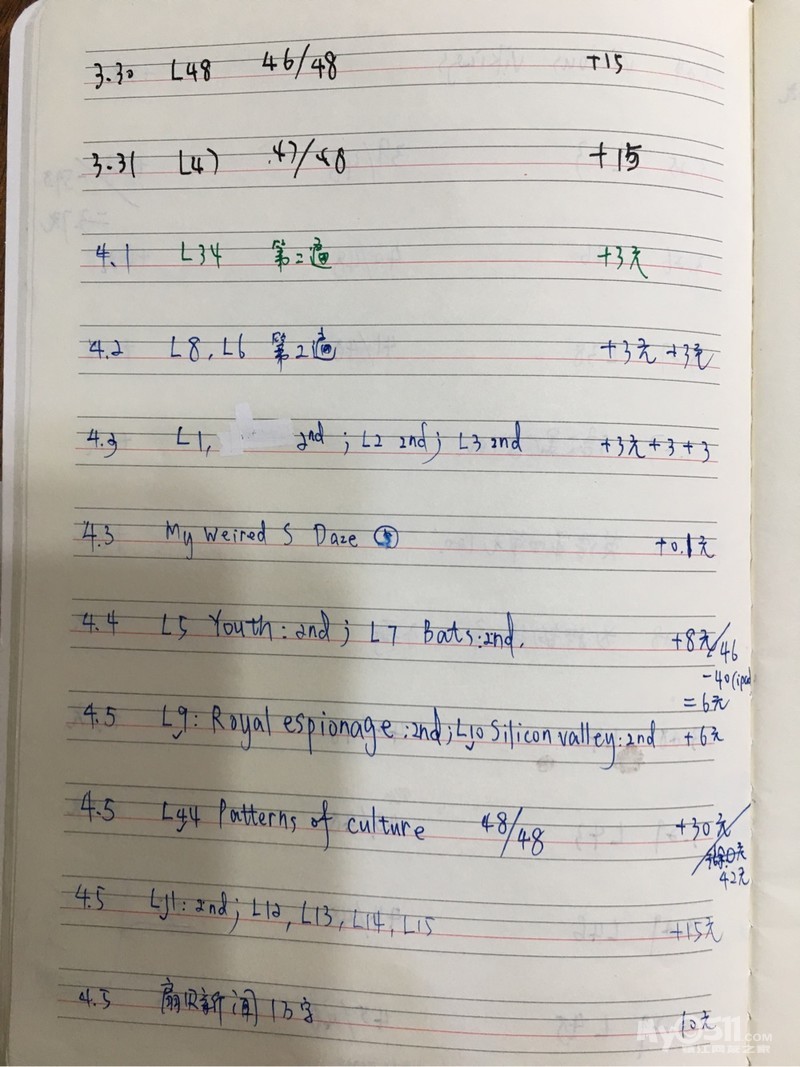 3.30 L48 46/48 +15
3.31 L47 47/48 +15
4.1 L34 第二遍 +3元
4.2 L8, L6 第2遍 +3元 +3元
4.3 L1, 2nd; L2 2nd; L3 2nd +3元+3+3
4.3 My Weired S Daze ⑤ +0.1元
4.4 L5 Youth: 2nd; L7 Bats: 2nd. +8元/46
-40(ipad
=6元
4.5 L9: Royal espionage: 2nd; L10 Silicon valley: 2nd +6元
4.5 L44 Patterns of culture 48/48 +30元/
42元
4.5 L11: 2nd; L12, L13, L14, L15 +15元
4.5 新闻 10元
My0511.COM